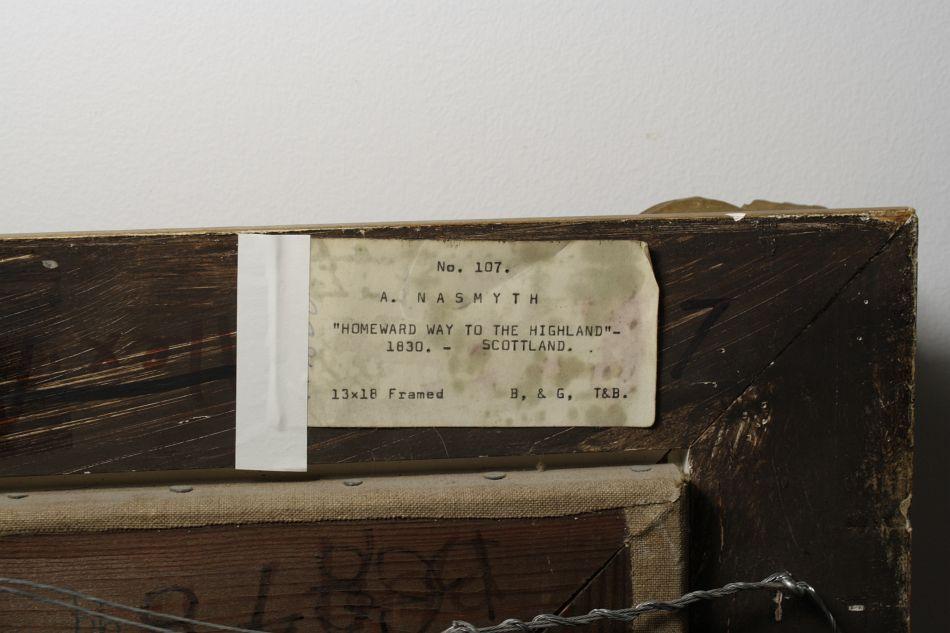 No. 107.
A. NASMYTH
"HOMEWARD WAY TO THE HIGHLAND"-
1830. - SCOTTLAND. .
13x18 Framed B, & G, T&B.
7